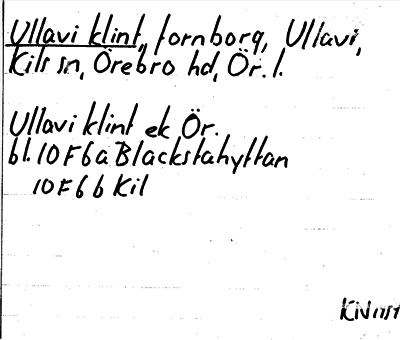 Ullavi klint, fornborg, Ullavi,
Kils sn, Örebro hd, Ör. l.
Ullavi klint ek Ör.
bl. 10F6a Blackstahyttan
10F6b Kil